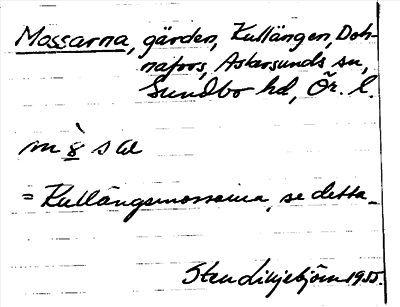 Mossarna, gärden, Kullängen, Doh-
nafors, Askersunds sn,
Sundbo hd, Ör. l.
= Kullängsmossarna, se detta.
Sten Liljebjörn 1955.